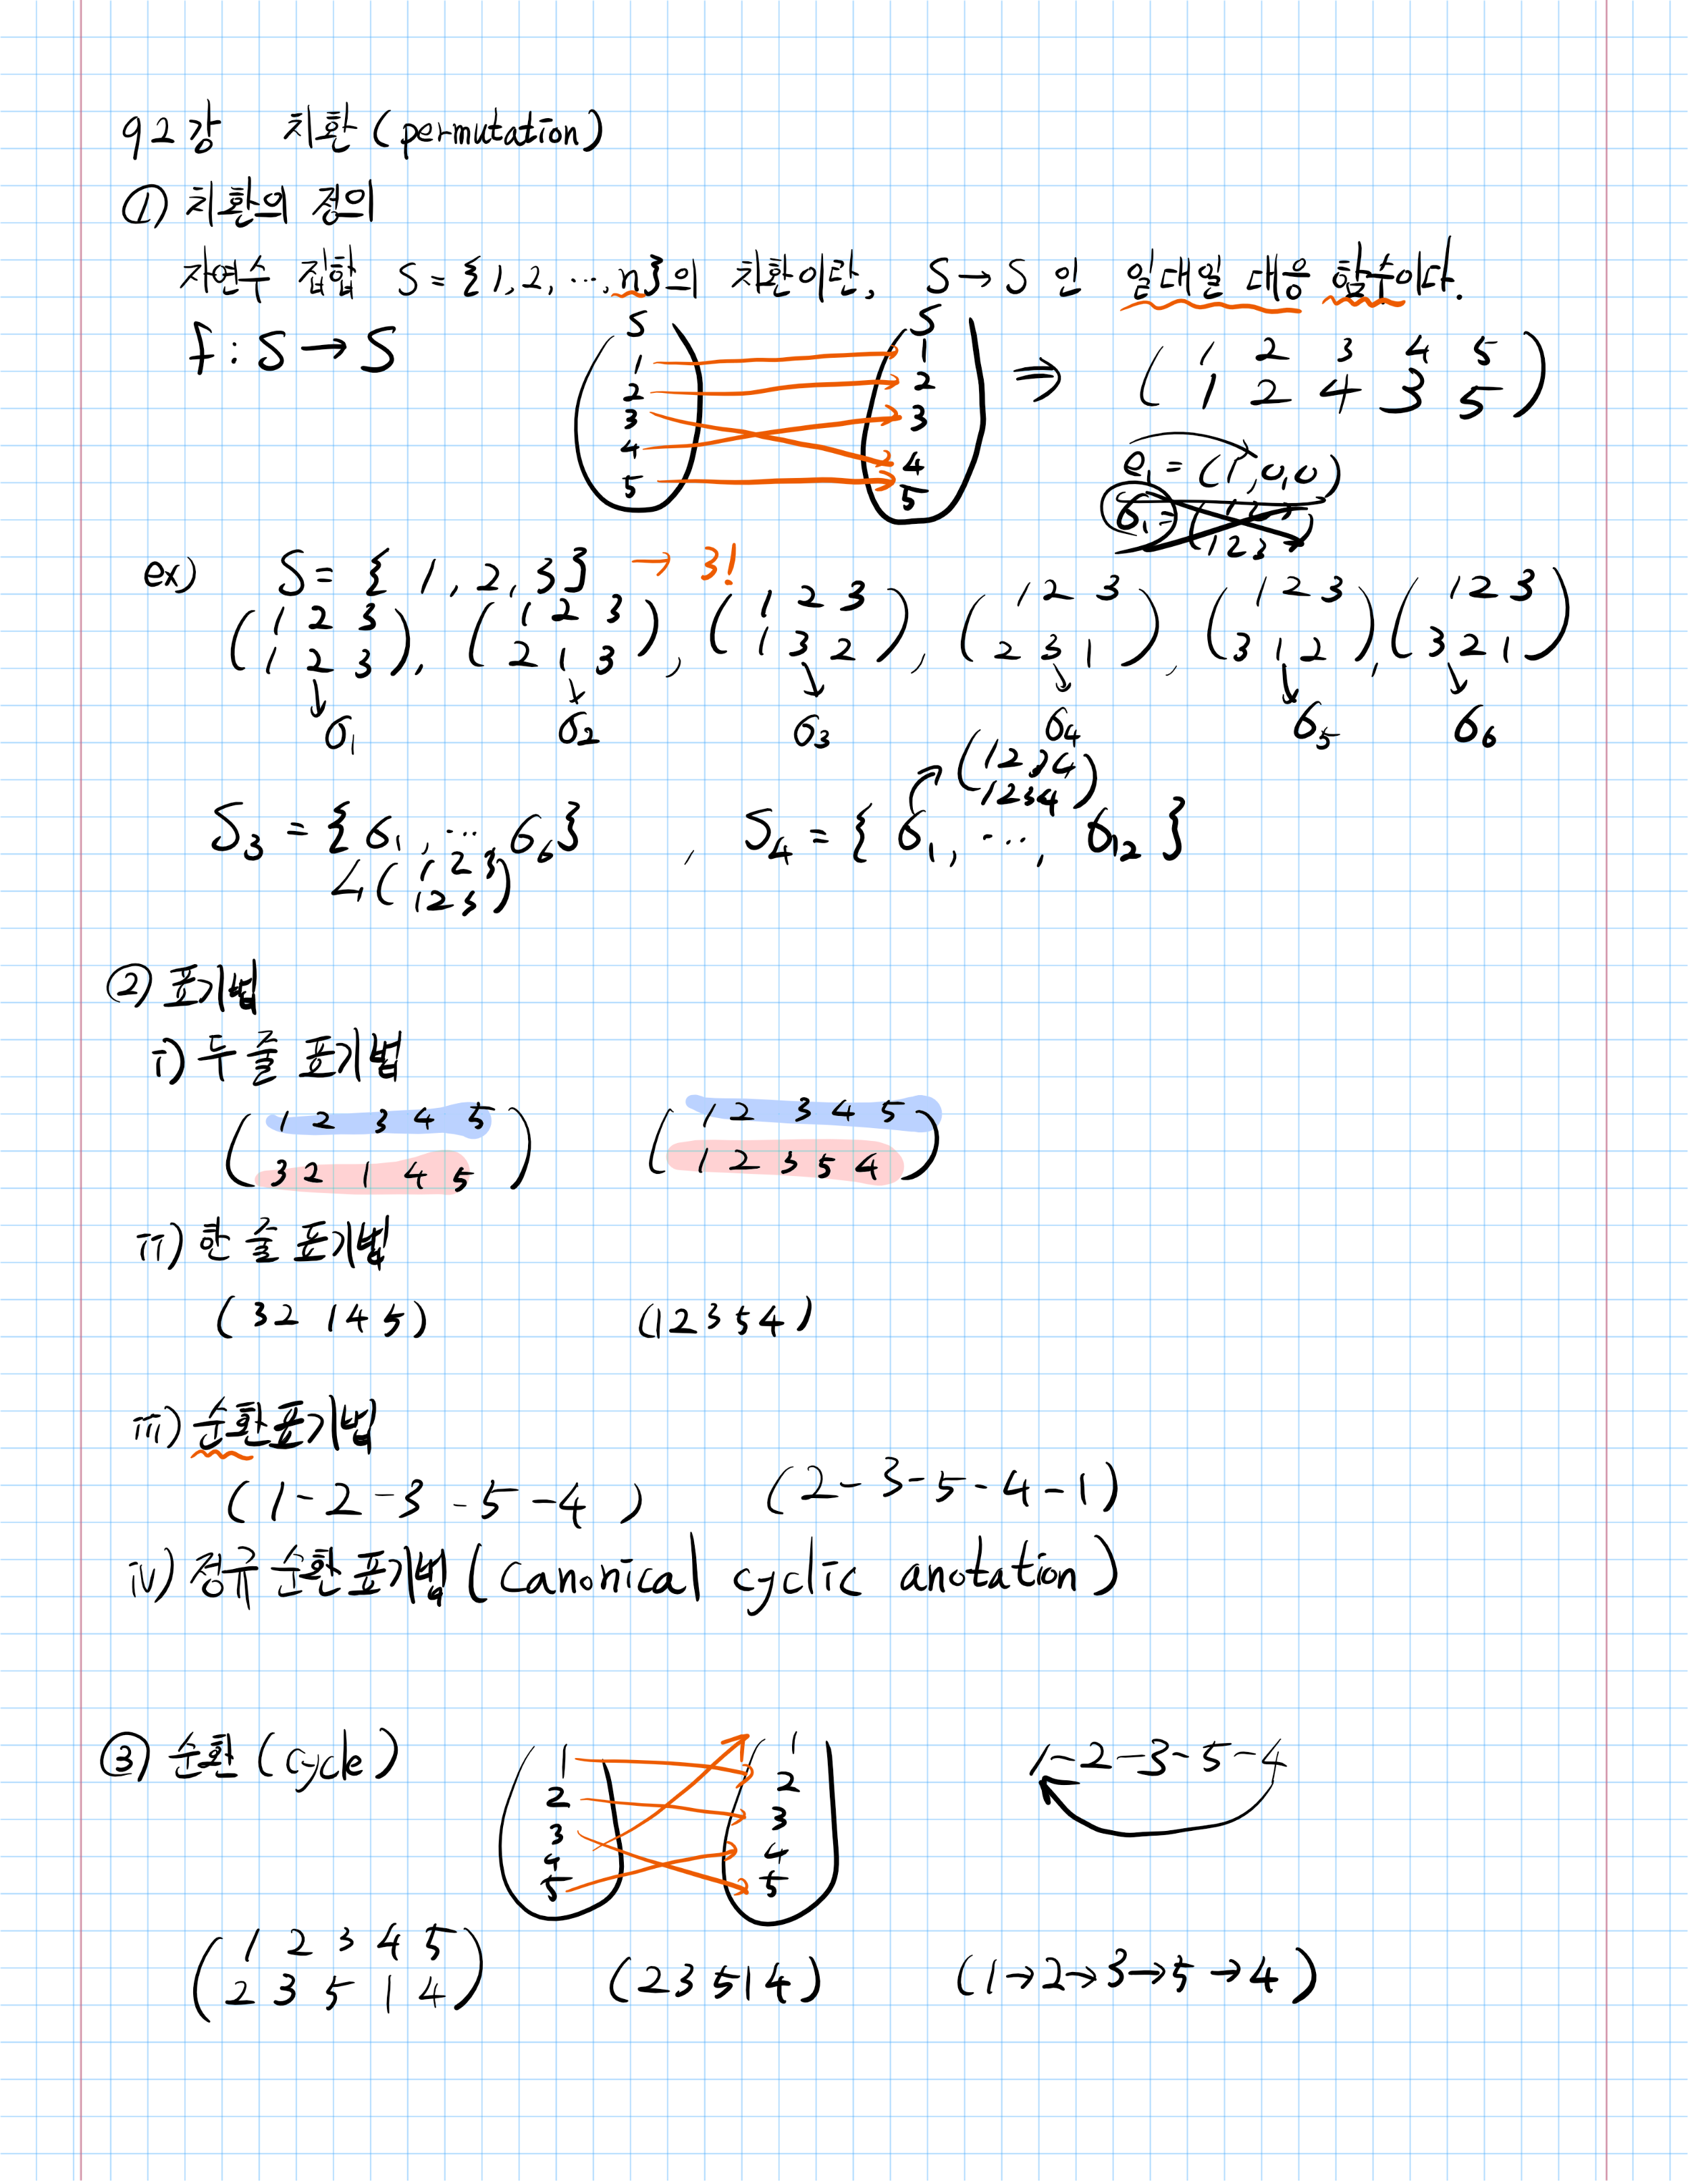 92강 치환 (permutation)
① 치환의 정의
자연수 집합 S = {1, 2, ⋯, n}의 치환이란, S → S 인 일대일 대응 함수이다.
f : S → S
S S
1 1
2 2
3 3
4 4
5 5
⇒
( 1 2 3 4 5 )
( 1 2 4 3 5 )
e₁ = (1, 0, 0)
σ₁ = ( 1 2 3 )
( 1 2 3 )
ex) S = { 1, 2, 3 } → 3!
( 1 2 3 ), ( 1 2 3 ), ( 1 2 3 ), ( 1 2 3 ), ( 1 2 3 ), ( 1 2 3 )
( 1 2 3 ) ( 2 1 3 ) ( 1 3 2 ) ( 2 3 1 ) ( 3 1 2 ) ( 3 2 1 )
σ₁ σ₂ σ₃ σ₄ σ₅ σ₆
( 1 2 3 4 )
( 1 2 3 4 )
S₃ = { σ₁, ⋯, σ₆ } , S₄ = { σ₁, ⋯, σ₁₂ }
( 1 2 3 )
( 1 2 3 )
② 표기법
i) 두 줄 표기법
( 1 2 3 4 5 ) ( 1 2 3 4 5 )
( 3 2 1 4 5 ) ( 1 2 3 5 4 )
ii) 한 줄 표기법
( 3 2 1 4 5 ) ( 1 2 3 5 4 )
iii) 순환표기법
( 1 - 2 - 3 - 5 - 4 ) ( 2 - 3 - 5 - 4 - 1 )
iv) 정규 순환 표기법 ( canonical cyclic anotation )
③ 순환 (cycle)
1 1
2 2
3 3
4 4
5 5
1 - 2 - 3 - 5 - 4
( 1 2 3 4 5 )
( 2 3 5 1 4 ) ( 2 3 5 1 4 ) ( 1 → 2 → 3 → 5 → 4 )